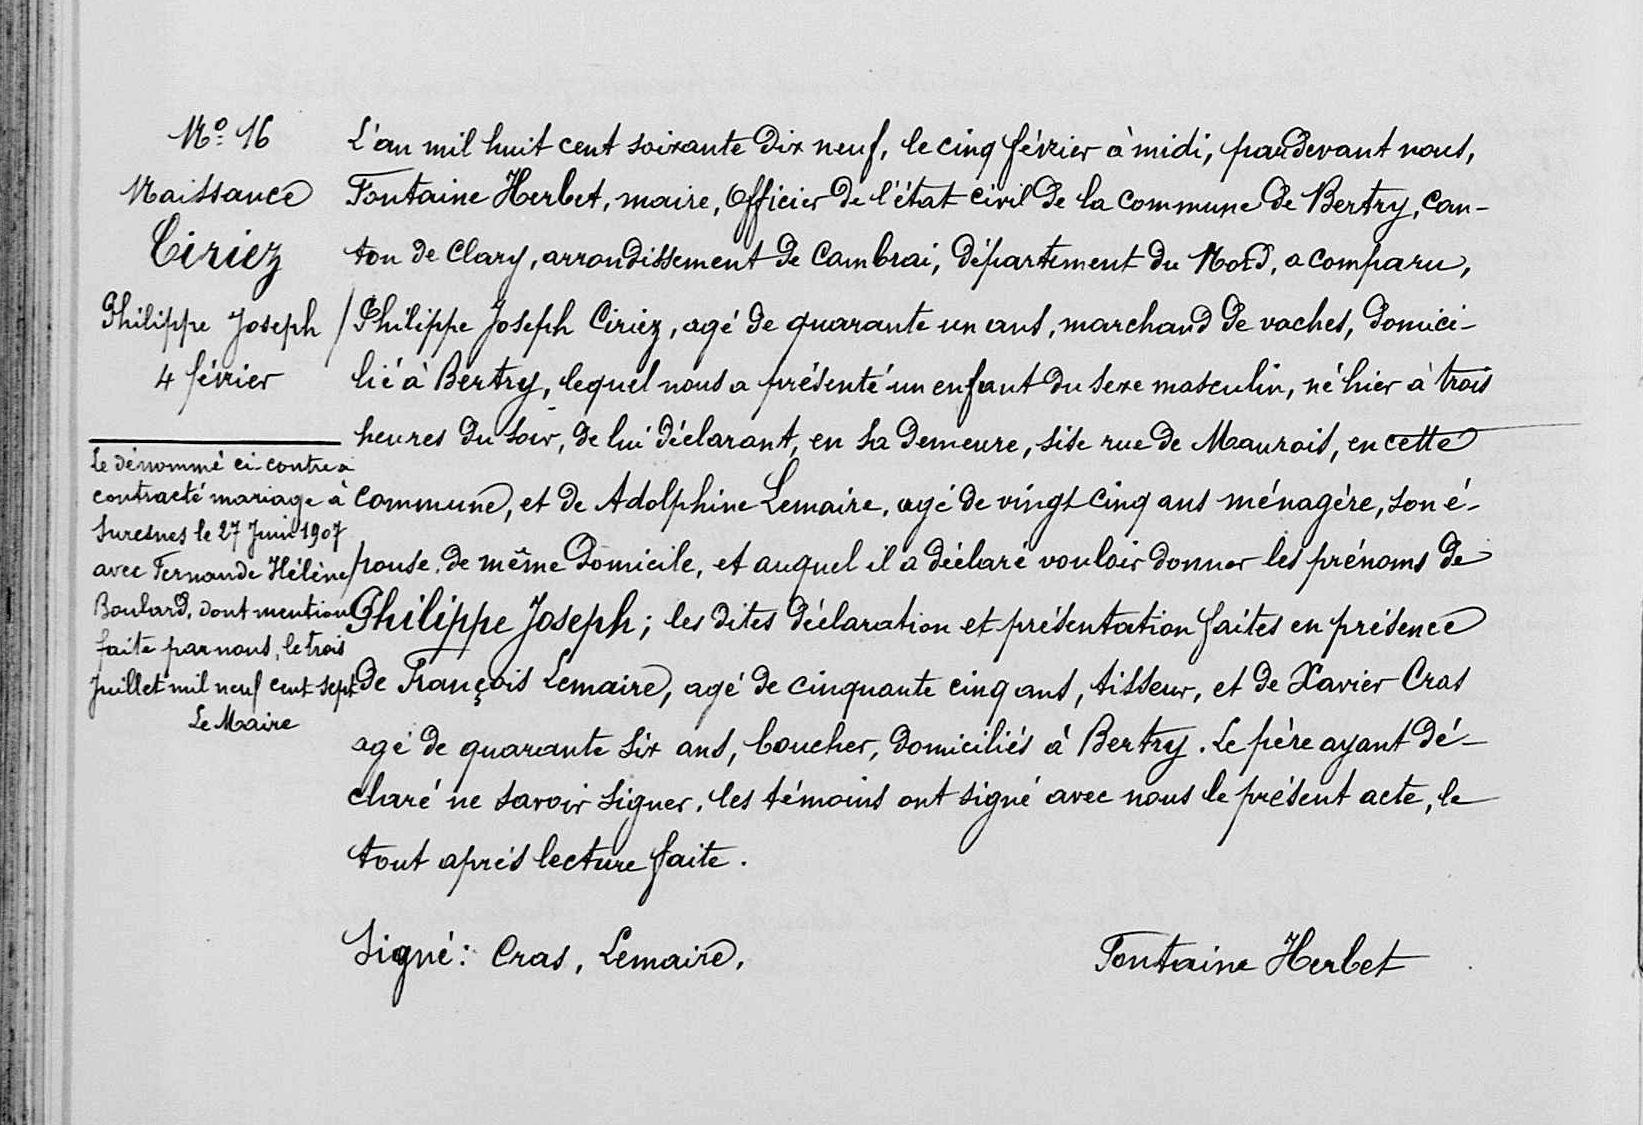 No 16
Naissance
Ciriez
Philippe Joseph
4 février
Le dénommé ci-contre a
contracté mariage à
Suresnes le 27 Juin 1907
avec Fernande Hélène
Boulard, dont mention
faite par nous, le trois
Juillet mil neuf cent sept
Le Maire
L'an mil huit cent soixante dix neuf, le cinq février à midi, pardevant nous,
Fontaine Herbet, maire, Officier de l'état civil de la commune de Bertry, can-
ton de Clary, arrondissement de Cambrai, département du Nord, a comparu,
Philippe Joseph Ciriez, agé de quarante un ans, marchand de vaches, domici-
lié à Bertry, lequel nous a présenté un enfant du sexe masculin, né hier à trois
heures du soir, de lui déclarant, en sa demeure, sise rue de Maurois, en cette
commune, et de Adolphine Lemaire, agé de vingt cinq ans ménagère, son é-
pouse, de même domicile, et auquel il a déclaré vouloir donner les prénoms de
Philippe Joseph; les dites déclaration et présentation faites en présence
de François Lemaire, agé de cinquante cinq ans, tisseur, et de Xavier Cras
agé de quarante six ans, boucher, domiciliés à Bertry. Le père ayant dé-
claré ne savoir signer, les témoins ont signé avec nous le présent acte, le
tout après lecture faite.
Signé: Cras, Lemaire,
Fontaine Herbet